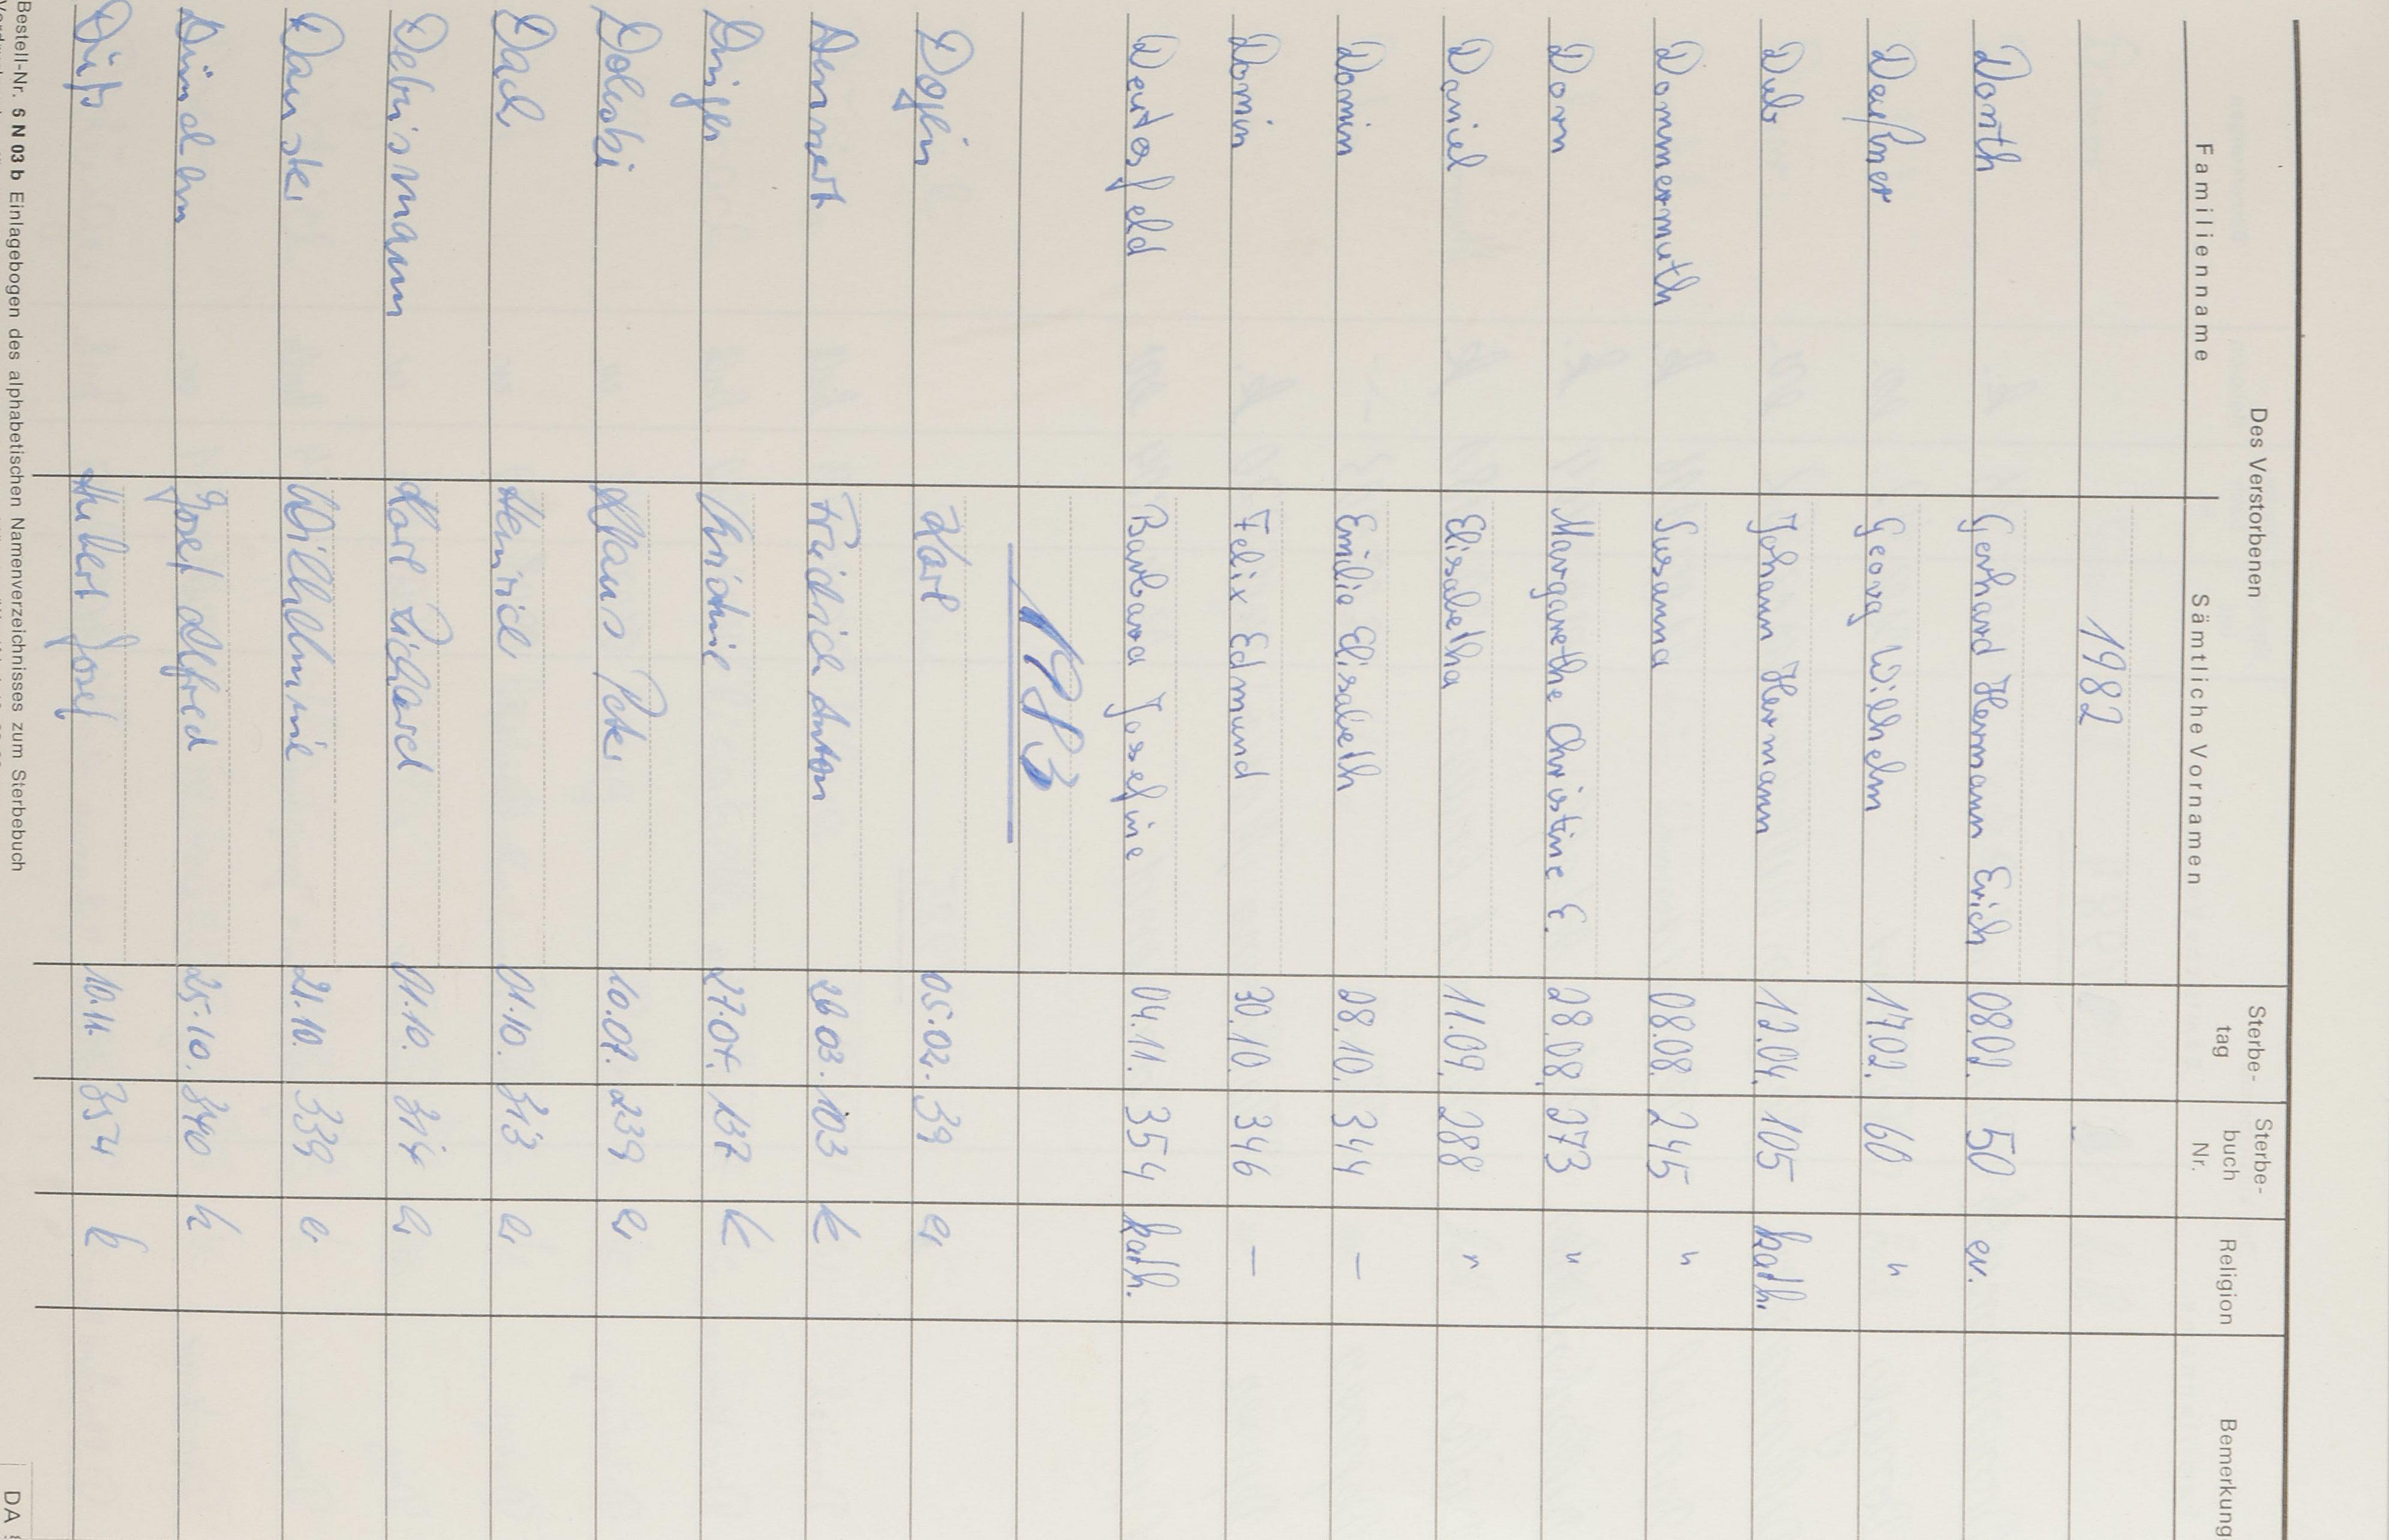 Des Verstorbenen
Familienname Sämtliche Vornamen Sterbe-tag Sterbe-buch Nr. Religion Bemerkung
1982
Donth Gerhard Hermann Erich 08.02. 50 ev.
Deußner Georg Wilhelm 17.02. 60 "
Dub Johann Hermann 12.04. 105 kath.
Dommermuth Susanna 08.08. 245 "
Dorn Margarethe Christine E. 28.08. 273 "
Daniel Elisabetha 11.09. 288 "
Domin Emilie Elisabeth 28.10. 344 —
Domin Felix Edmund 30.10. 346 —
Deutesfeld Barbara Josefine 04.11. 354 kath.
1983
Karl 05.02. 39
Dennert Friedrich Anton 26.03. 103 k
27.04. 137 k
Klaus Peter 239
Dach Heinrich 01.10. 313
Debusmann Karl Richard 01.10. 314
Wilhelmine 21.10. 339 e.
Josef Alfred 25.10. 340 k
Hubert Josef 10.11. 354 k
Bestell-Nr. 5 N 03 b Einlagebogen des alphabetischen Namenverzeichnisses zum Sterbebuch
DA